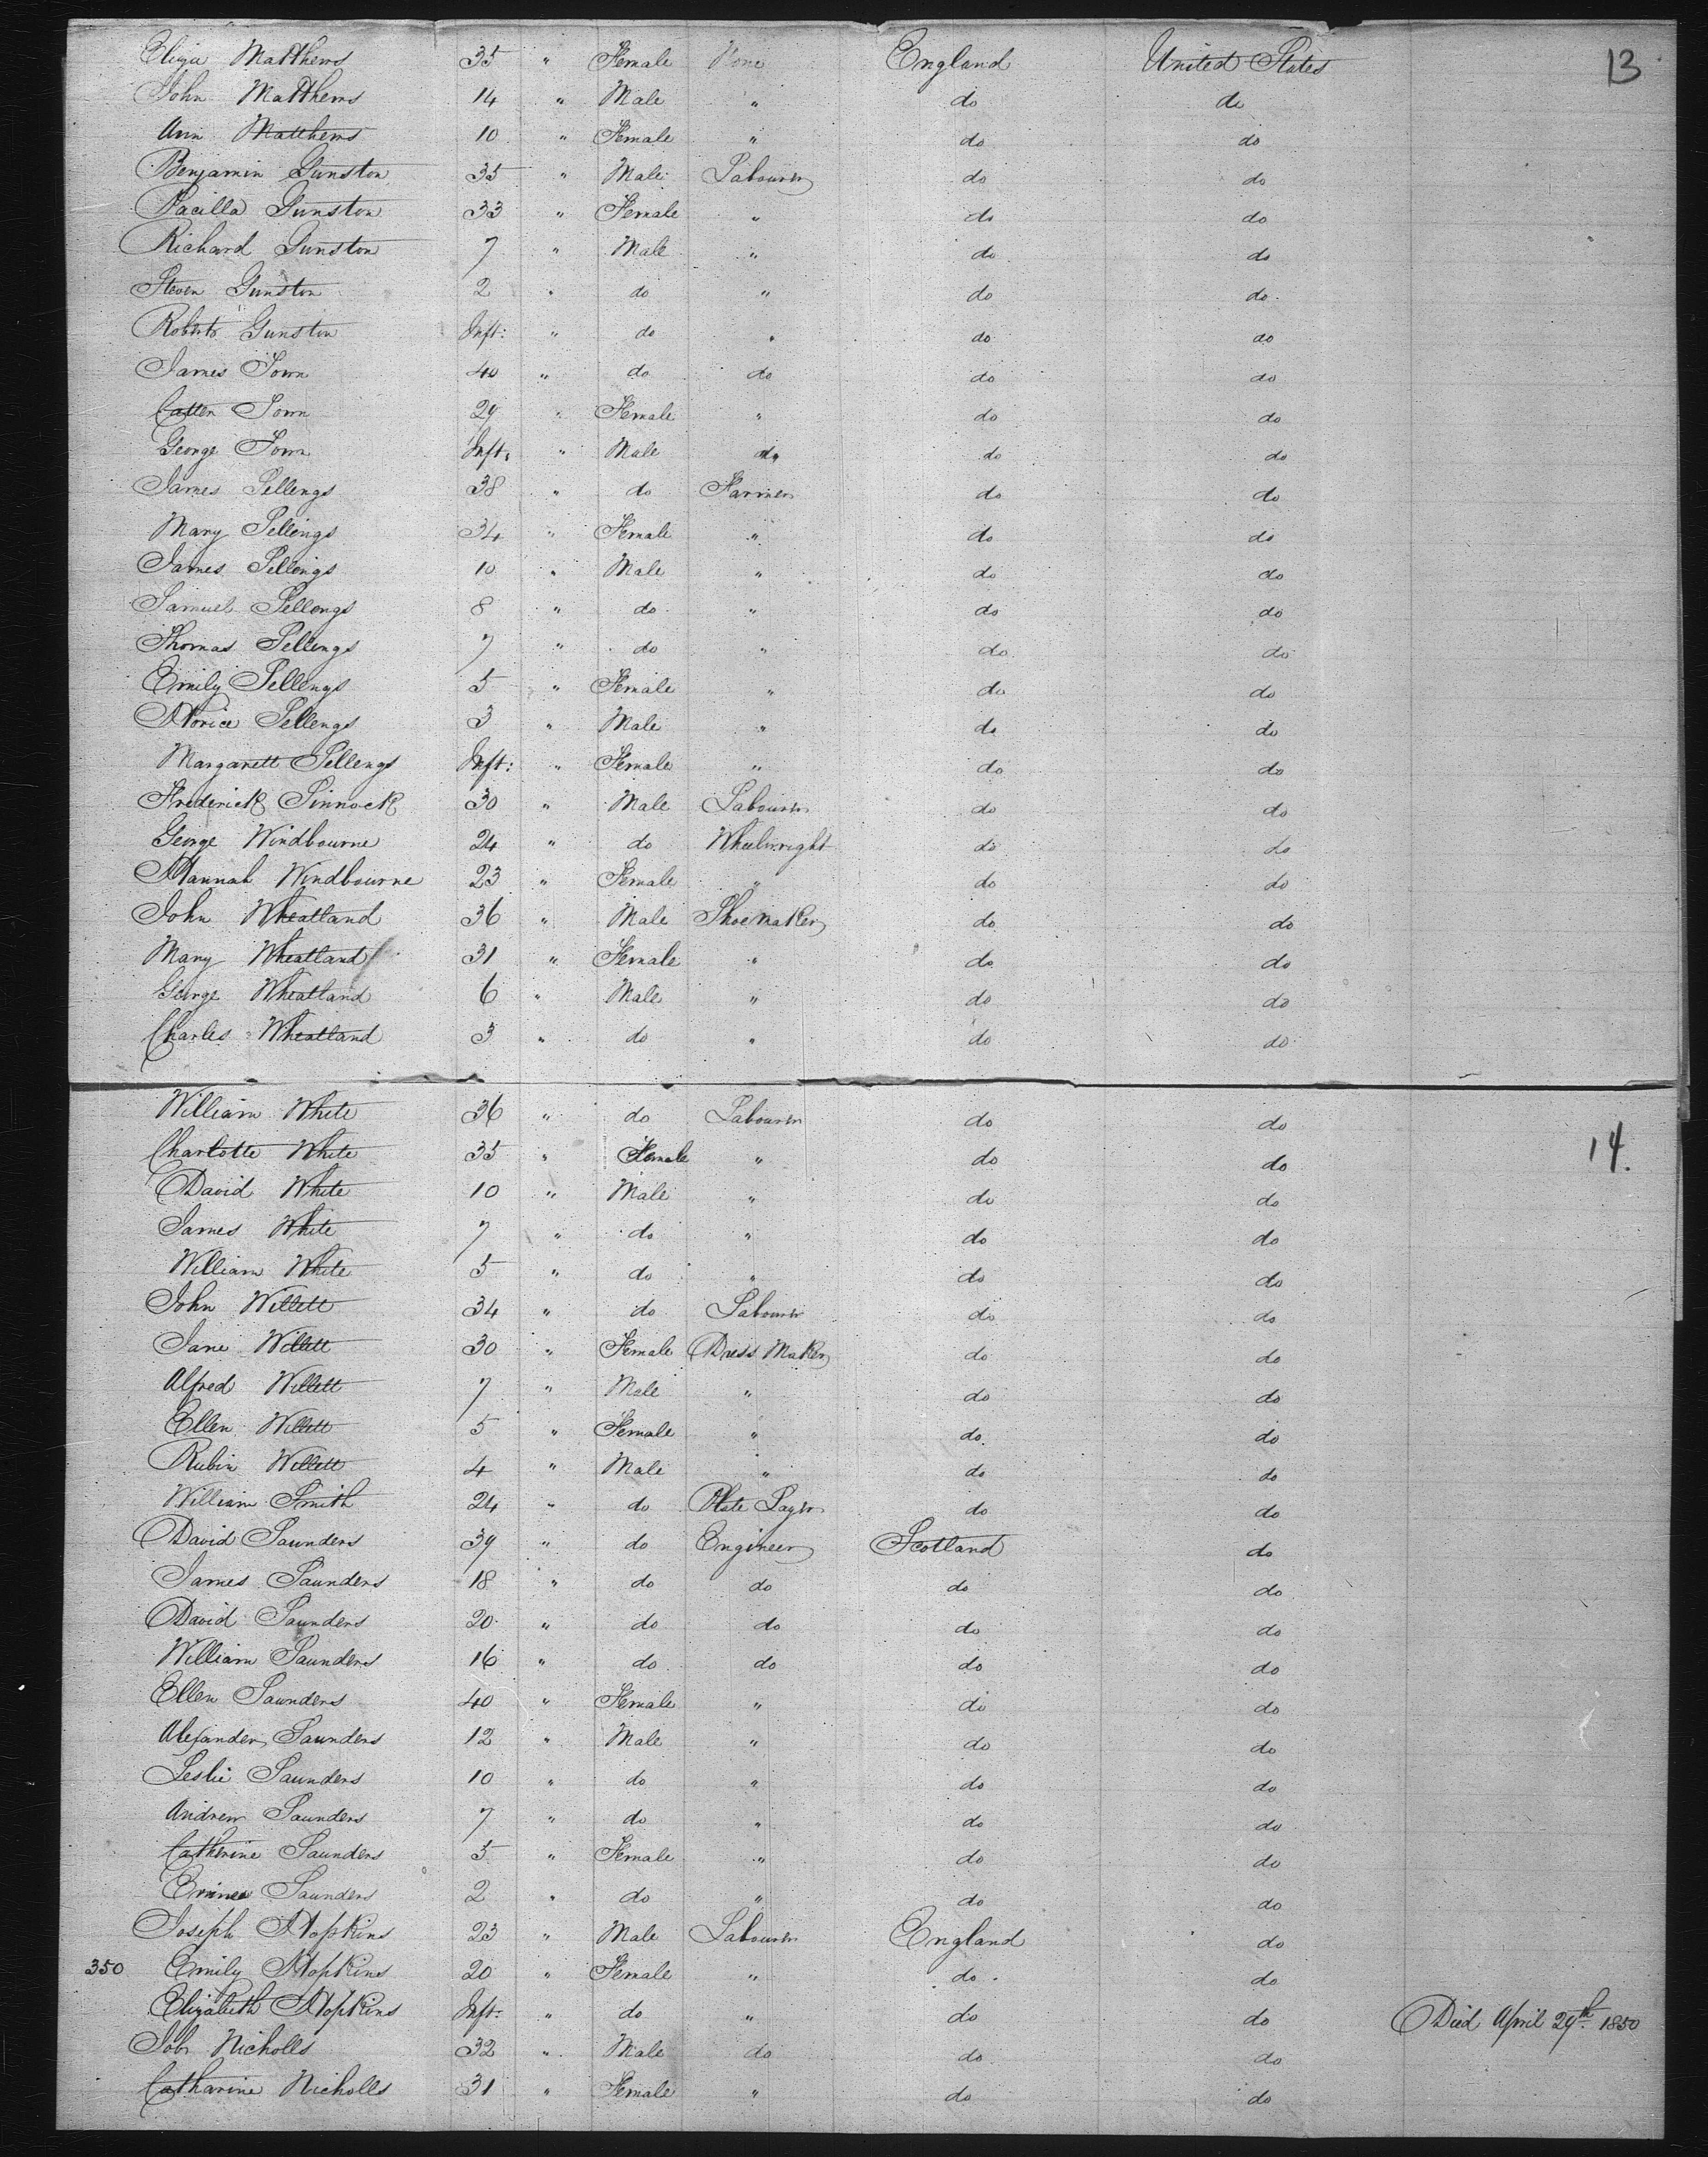 Eliza Matthews 35 " Female None England United States 13
John Matthews 14 " Male " do do
Ann Matthews 10 " Female " do do
Benjamin Gunston 35 " Male Labourer do do
Pacilla Gunston 33 " Female " do do
Richard Gunston 7 " Male " do do
Steven Gunston 2 " do " do do
Robert Gunston Inft: " do " do do
James Town 40 " do do do do
Town 29 " Female " do do
George Town Inft: " Male do do do
James Pellengs 38 " do Farmer do do
Mary Pellengs 34 " Female " do do
James Pellengs 10 " Male " do do
Samuel Pellengs 8 " do " do do
Thomas Pellengs 7 " do " do do
Emily Pellengs 5 " Female " do do
Horice Pellengs 3 " Male " do do
Margarett Pellengs Inft: " Female " do do
Frederick Pinnock 30 " Male Labourer do do
George Windbourne 24 " do Wheelwright do do
Hannah Windbourne 23 " Female " do do
John Wheatland 36 " Male Shoemaker do do
Mary Wheatland 31 " Female " do do
George Wheatland 6 " Male " do do
Charles Wheatland 3 " do " do do
William White 36 " do Labourer do do
Charlotte White 35 " Female " do do 14.
David White 10 " Male " do do
James White 7 " do " do do
William White 5 " do " do do
John Willett 34 " do Labourer do do
Jane Willett 30 " Female Dress Maker do do
Alfred Willett 7 " Male " do do
Ellen Willett 5 " Female " do do
Rubin Willett 4 " Male " do do
William Smith 24 " do Plate Layer do do
David Saunders 39 " do Engineer Scotland do
James Saunders 18 " do do do do
David Saunders 20 " do do do do
William Saunders 16 " do do do do
Ellen Saunders 40 " Female " do do
Alexander Saunders 12 " Male " do do
Leslie Saunders 10 " do " do do
Andrew Saunders 7 " do " do do
Catherine Saunders 5 " Female " do do
Saunders 2 " do " do do
Joseph Hopkins 23 " Male Labourer England do
350 Emily Hopkins 20 " Female " do do
Elizabeth Hopkins Inft: " do " do do Died April 29th 1850
Job Nicholls 32 " Male do do do
Catharine Nicholls 31 " Female " do do